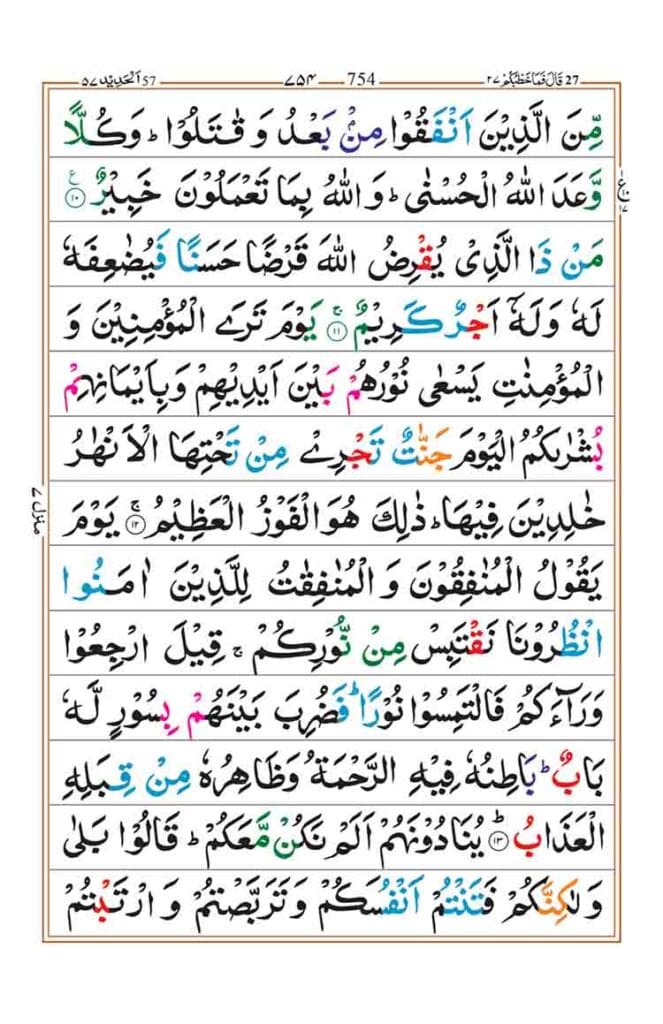 27 قَالَ فَمَا خَطْبُكُمْ ٢٧
754 ٧٥٤
57 اَلْحَدِيد ٥٧
مِّنَ الَّذِيْنَ اَنْفَقُوْا مِنْۢ بَعْدُ وَ قٰتَلُوْا ؕ وَكُلًّا
وَّعَدَ اللّٰهُ الْحُسْنٰى ؕ وَ اللّٰهُ بِمَا تَعْمَلُوْنَ خَبِيْرٌ ۧ ١٠
مَنْ ذَا الَّذِىْ يُقْرِضُ اللّٰهَ قَرْضًا حَسَنًا فَيُضٰعِفَهٗ
لَهٗ وَلَهٗۤ اَجْرٌ كَرِيْمٌ ۚ ١١ يَوْمَ تَرَى الْمُؤْمِنِيْنَ وَ
الْمُؤْمِنٰتِ يَسْعٰى نُوْرُهُمْ بَيْنَ اَيْدِيْهِمْ وَبِاَيْمَانِهِمْ
بُشْرٰىكُمُ الْيَوْمَ جَنّٰتٌ تَجْرِىْ مِنْ تَحْتِهَا الْاَنْهٰرُ
خٰلِدِيْنَ فِيْهَا ؕ ذٰلِكَ هُوَ الْفَوْزُ الْعَظِيْمُ ۚ ١٢ يَوْمَ
يَقُوْلُ الْمُنٰفِقُوْنَ وَ الْمُنٰفِقٰتُ لِلَّذِيْنَ اٰمَنُوا
انْظُرُوْنَا نَقْتَبِسْ مِنْ نُّوْرِكُمْ ۚ قِيْلَ ارْجِعُوْا
وَرَآءَكُمْ فَالْتَمِسُوْا نُوْرًا ؕ فَضُرِبَ بَيْنَهُمْ بِسُوْرٍ لَّهٗ
بَابٌ ؕ بَاطِنُهٗ فِيْهِ الرَّحْمَةُ وَظَاهِرُهٗ مِنْ قِبَلِهِ
الْعَذَابُ ؕ ١٣ يُنَادُوْنَهُمْ اَلَمْ نَكُنْ مَّعَكُمْ ؕ قَالُوْا بَلٰى
وَ لٰكِنَّكُمْ فَتَنْتُمْ اَنْفُسَكُمْ وَ تَرَبَّصْتُمْ وَ ارْتَبْتُمْ
منزل ٧